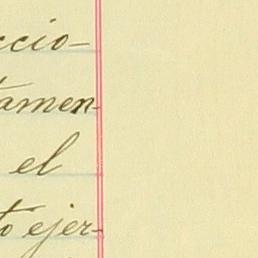 ccio-
tamen-
el
to ejer-